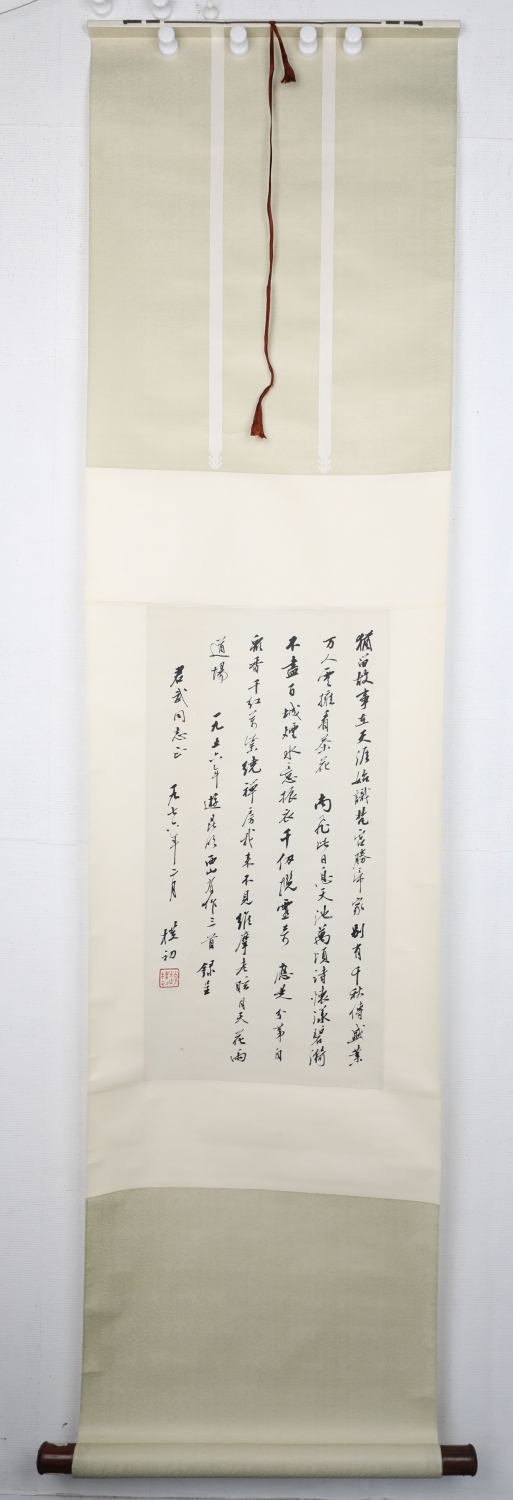 猶留故事在天涯始識梵宮勝帝家別有千秋傳盛業
万人空擁看茶花 南疆此日息天池萬頃詩懷漾碧漪
不盡百城煙水意振衣千仞攬靈芝 應是分革自
飄香千紅萬紫繞禪房我来不見維摩老眩目天花雨
道場 一九五六年遊昆明西山有作三首 録呈
君武同志正 一九七六年二月 樸初